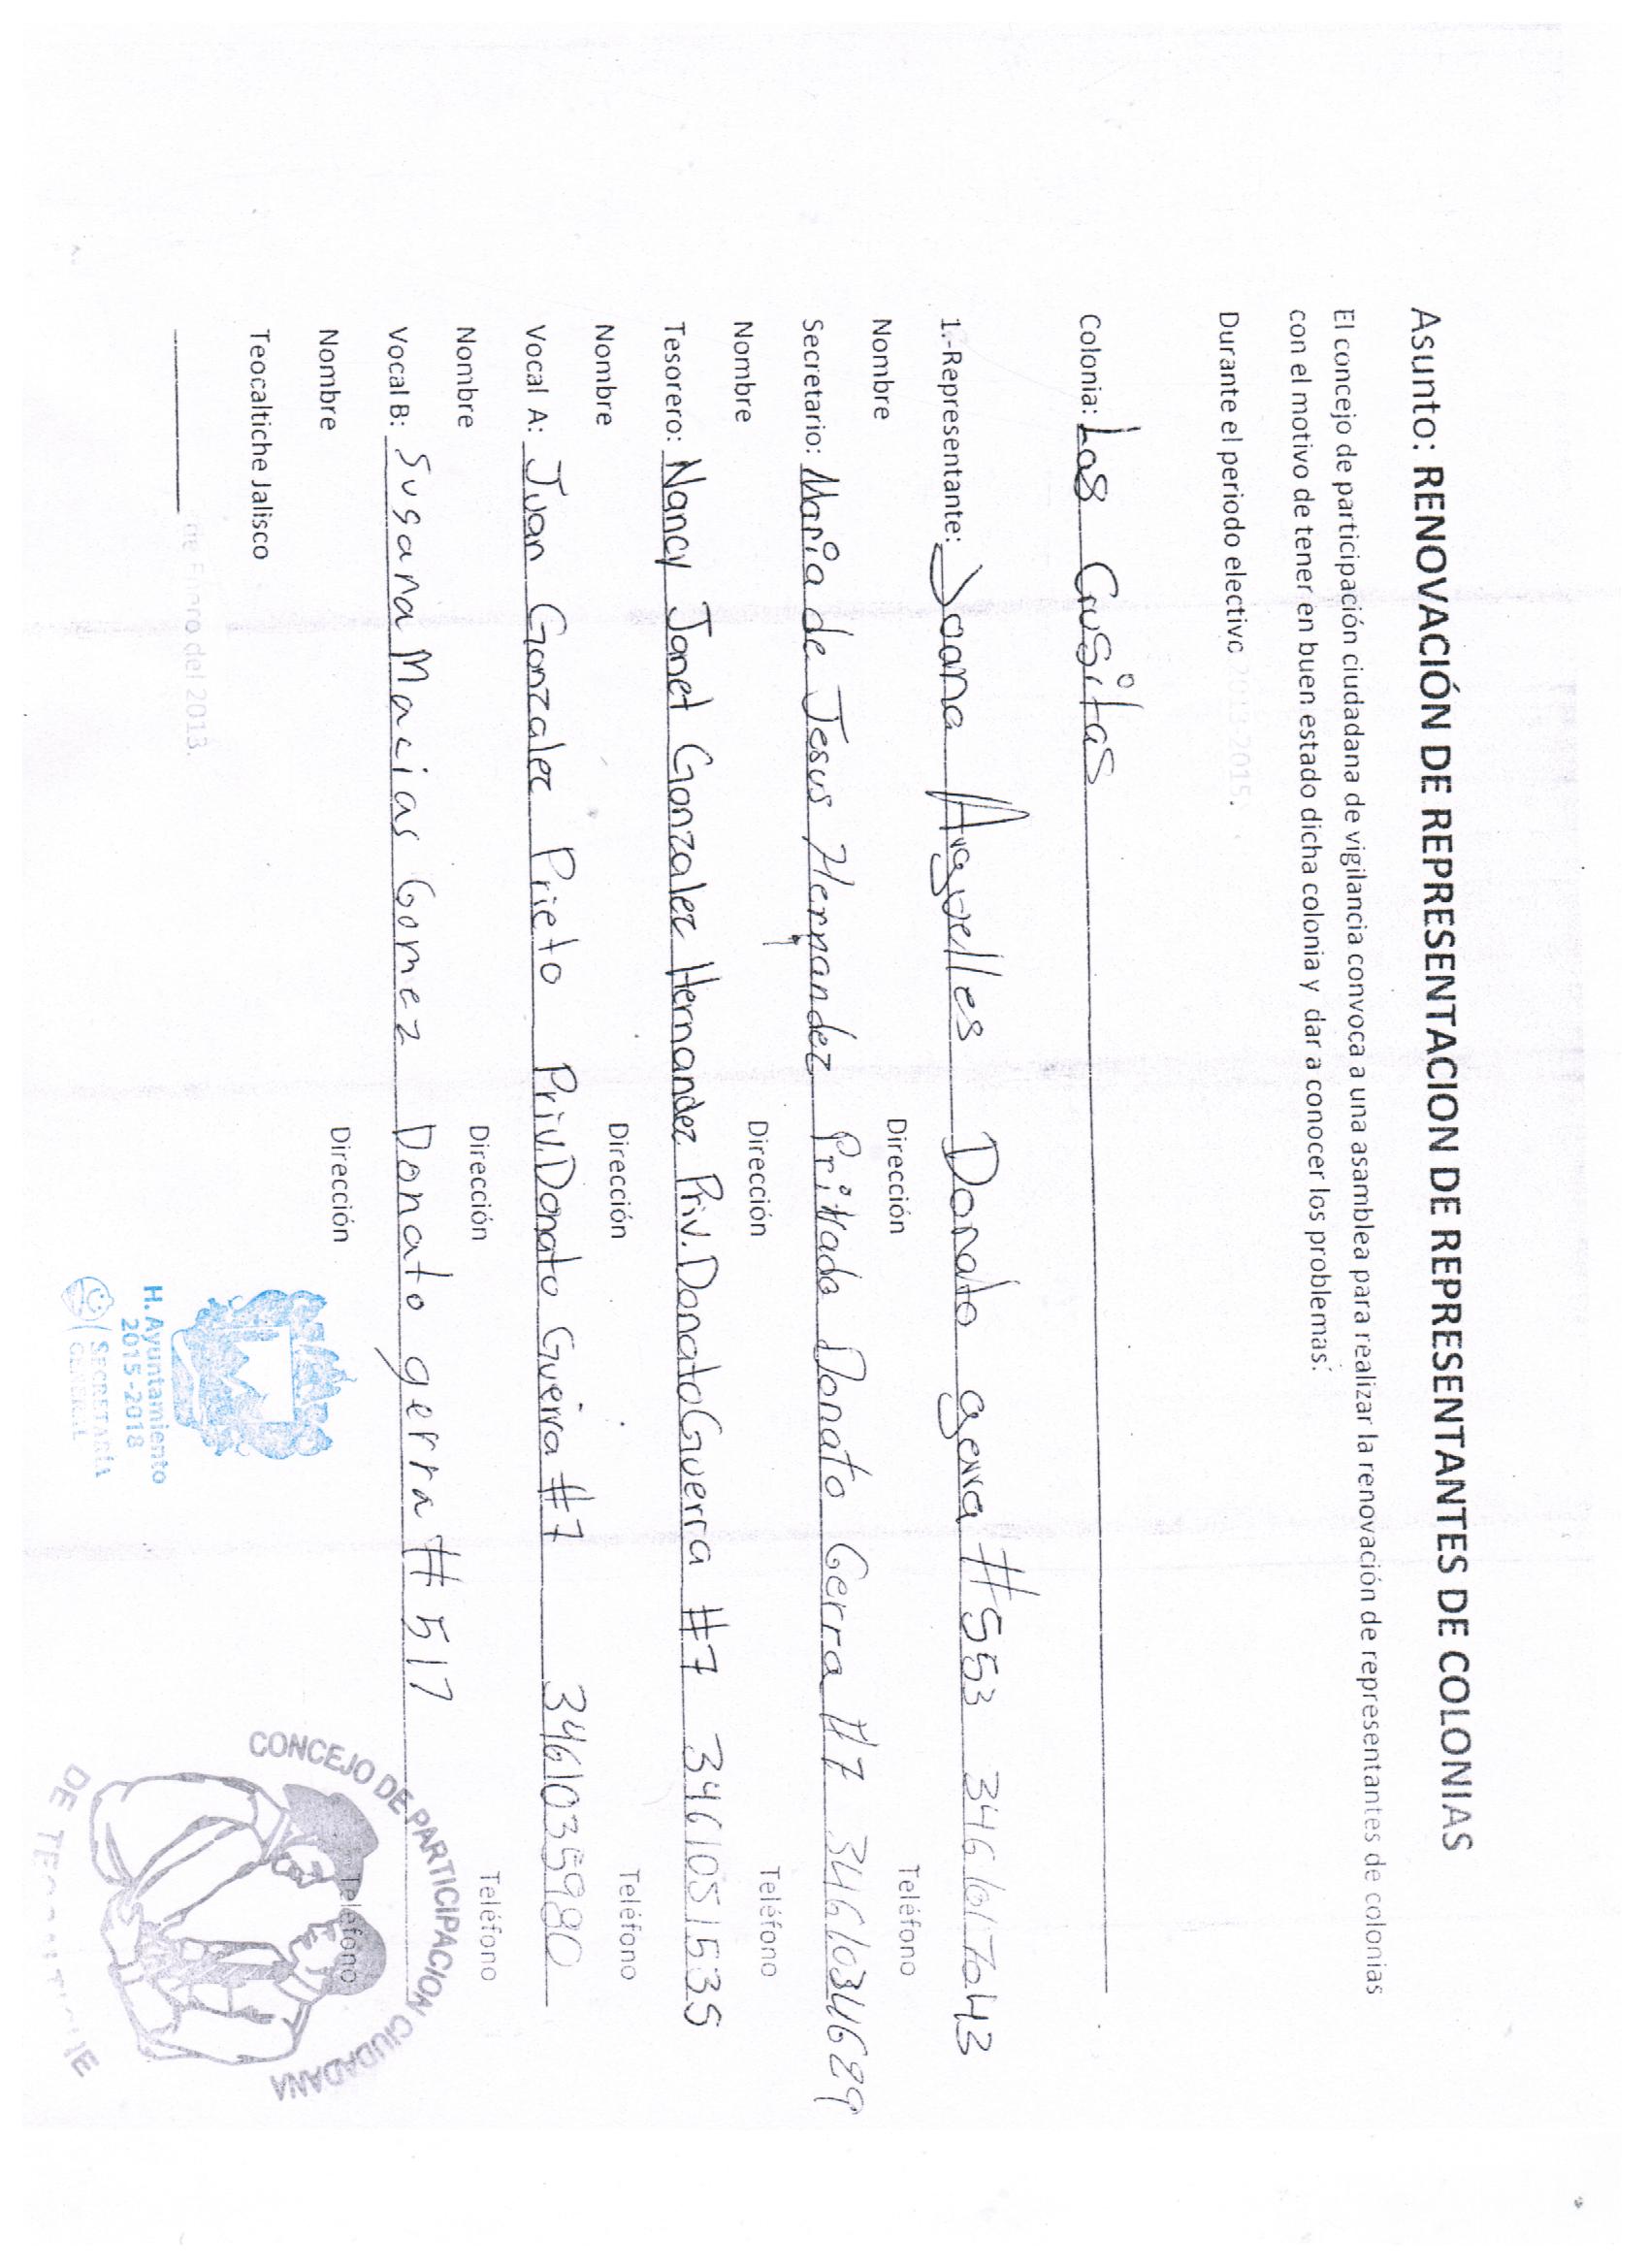 Asunto: RENOVACIÓN DE REPRESENTACION DE REPRESENTANTES DE COLONIAS
El concejo de participación ciudadana de vigilancia convoca a una asamblea para realizar la renovación de representantes de colonias
con el motivo de tener en buen estado dicha colonia y dar a conocer los problemas.
Durante el periodo electivo 2013-2015.
Colonia: Las Casitas
1.-Representante: Joana Arguelles Donato gerra #553 3461017043
Nombre Dirección Teléfono
Secretario: Maria de Jesus Hernandez Privada Donato Gerra #7 3461034629
Nombre Dirección Teléfono
Tesorero: Nancy Janet Gonzalez Hernandez Priv. Donato Guerra #7 3461051535
Nombre Dirección Teléfono
Vocal A: Juan Gonzalez Prieto Priv. Donato Guerra #7 3461035980
Nombre Dirección Teléfono
Vocal B: Susana Macias Gomez Donato gerra # 517
Nombre Dirección Teléfono
Teocaltiche Jalisco
de Enero del 2013.
H. Ayuntamiento
2015-2018
SECRETARÍA
GENERAL
CONCEJO DE PARTICIPACION CIUDADANA
DE